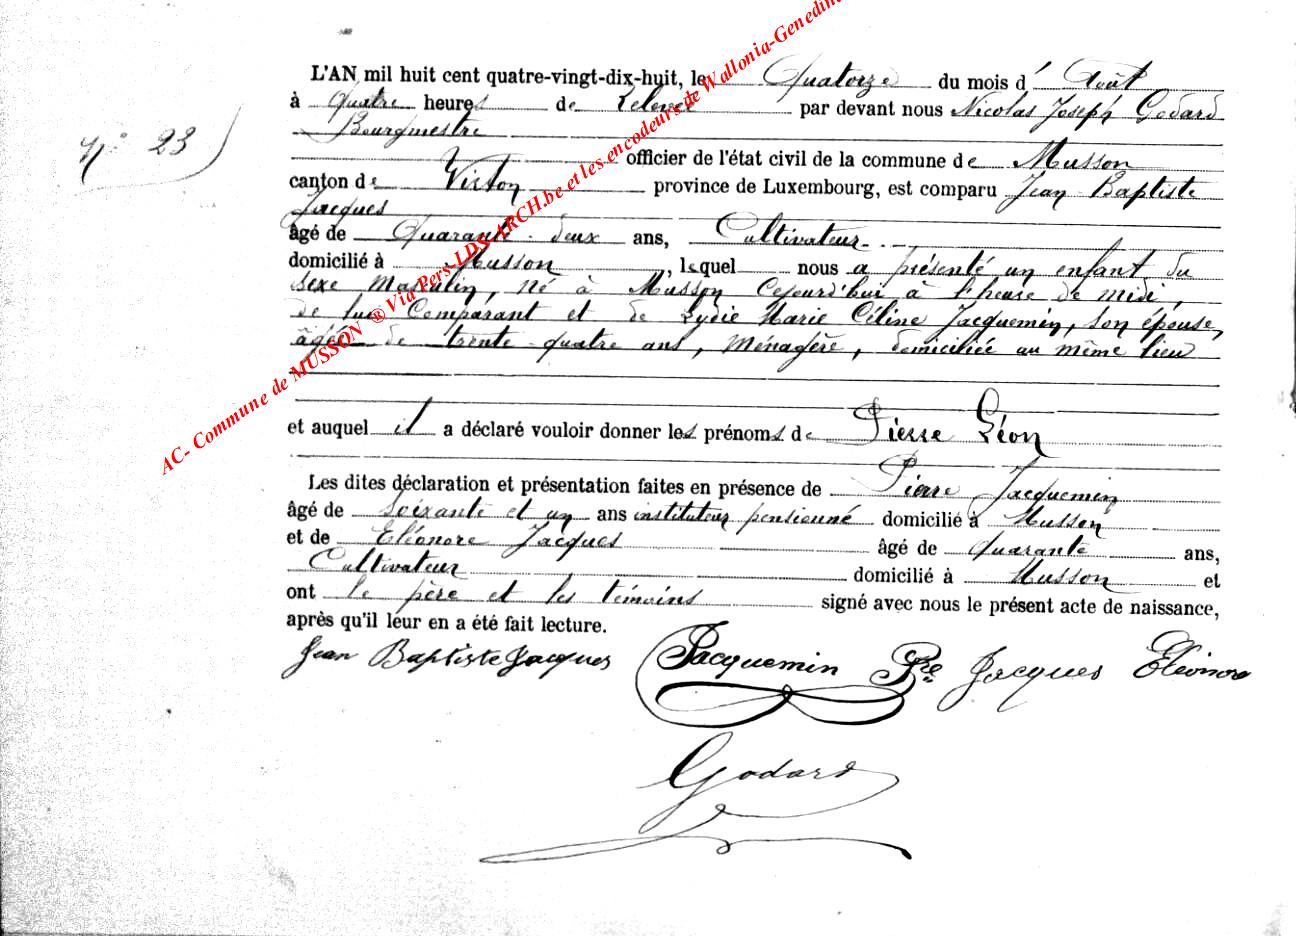 L'AN mil huit cent quatre-vingt-dix-huit, le Quatorze du mois d' Août
à quatre heures de relevée par devant nous Nicolas Joseph Godard
Bourgmestre
N° 23
officier de l'état civil de la commune de Musson
canton de Virton province de Luxembourg, est comparu Jean-Baptiste
Jacques
âgé de Quarante-deux ans, Cultivateur
domicilié à Musson, lequel nous a présenté un enfant du
sexe masculin, né à Musson cejourd'hui à l'heure de midi,
de lui Comparant et de Lydie Marie Céline Jacquemin, son épouse,
âgée de trente-quatre ans, Ménagère, domiciliée au même lieu
et auquel il a déclaré vouloir donner les prénoms de Pierre Léon
Les dites déclaration et présentation faites en présence de Pierre Jacquemin
âgé de Soixante et un ans instituteur pensionné domicilié à Musson
et de Eléonore Jacques âgé de Quarante ans,
Cultivateur domicilié à Musson et
ont le père et les témoins signé avec nous le présent acte de naissance,
après qu'il leur en a été fait lecture.
Jean Baptiste Jacques Jacquemin Pre Jacques Eléonore
Godard
AC- Commune de MUSSON ® Via Pers-LDS-ARCH.be et les encodeurs de Wallonia-Genedin